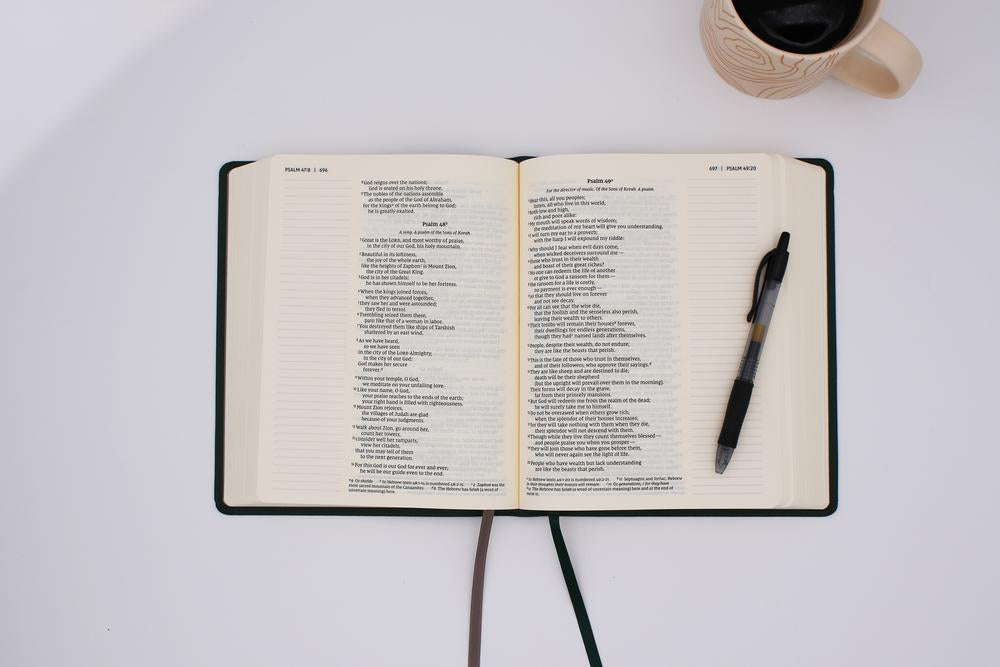 PSALM 47:8 | 696
8God reigns over the nations;
God is seated on his holy throne.
9The nobles of the nations assemble
as the people of the God of Abraham,
for the kingsa of the earth belong to God;
he is greatly exalted.
Psalm 48b
A song. A psalm of the Sons of Korah.
1Great is the LORD, and most worthy of praise,
in the city of our God, his holy mountain.
2Beautiful in its loftiness,
the joy of the whole earth,
like the heights of Zaphonc is Mount Zion,
the city of the Great King.
3God is in her citadels;
he has shown himself to be her fortress.
4When the kings joined forces,
when they advanced together,
5they saw her and were astounded;
they fled in terror.
6Trembling seized them there,
pain like that of a woman in labor.
7You destroyed them like ships of Tarshish
shattered by an east wind.
8As we have heard,
so we have seen
in the city of the LORD Almighty,
in the city of our God:
God makes her secure
forever.d
9Within your temple, O God,
we meditate on your unfailing love.
10Like your name, O God,
your praise reaches to the ends of the earth;
your right hand is filled with righteousness.
11Mount Zion rejoices,
the villages of Judah are glad
because of your judgments.
12Walk about Zion, go around her,
count her towers,
13consider well her ramparts,
view her citadels,
that you may tell of them
to the next generation.
14For this God is our God for ever and ever;
he will be our guide even to the end.
a9 Or shields b In Hebrew texts 48:1-14 is numbered 48:2-15. c2 Zaphon was the
most sacred mountain of the Canaanites. d8 The Hebrew has Selah (a word of
uncertain meaning) here.
697 | PSALM 49:20
Psalm 49a
For the director of music. Of the Sons of Korah. A psalm.
1Hear this, all you peoples;
listen, all who live in this world,
2both low and high,
rich and poor alike:
3My mouth will speak words of wisdom;
the meditation of my heart will give you understanding.
4I will turn my ear to a proverb;
with the harp I will expound my riddle:
5Why should I fear when evil days come,
when wicked deceivers surround me—
6those who trust in their wealth
and boast of their great riches?
7No one can redeem the life of another
or give to God a ransom for them—
8the ransom for a life is costly,
no payment is ever enough—
9so that they should live on forever
and not see decay.
10For all can see that the wise die,
that the foolish and the senseless also perish,
leaving their wealth to others.
11Their tombs will remain their housesb forever,
their dwellings for endless generations,
though they hadc named lands after themselves.
12People, despite their wealth, do not endure;
they are like the beasts that perish.
13This is the fate of those who trust in themselves,
and of their followers, who approve their sayings.d
14They are like sheep and are destined to die;
death will be their shepherd
(but the upright will prevail over them in the morning).
Their forms will decay in the grave,
far from their princely mansions.
15But God will redeem me from the realm of the dead;
he will surely take me to himself.
16Do not be overawed when others grow rich,
when the splendor of their houses increases;
17for they will take nothing with them when they die,
their splendor will not descend with them.
18Though while they live they count themselves blessed—
and people praise you when you prosper—
19they will join those who have gone before them,
who will never again see the light of life.
20People who have wealth but lack understanding
are like the beasts that perish.
a In Hebrew texts 49:1-20 is numbered 49:2-21. b11 Septuagint and Syriac; Hebrew
In their thoughts their houses will remain c11 Or generations, / for they have
d13 The Hebrew has Selah (a word of uncertain meaning) here and at the end of
verse 15.